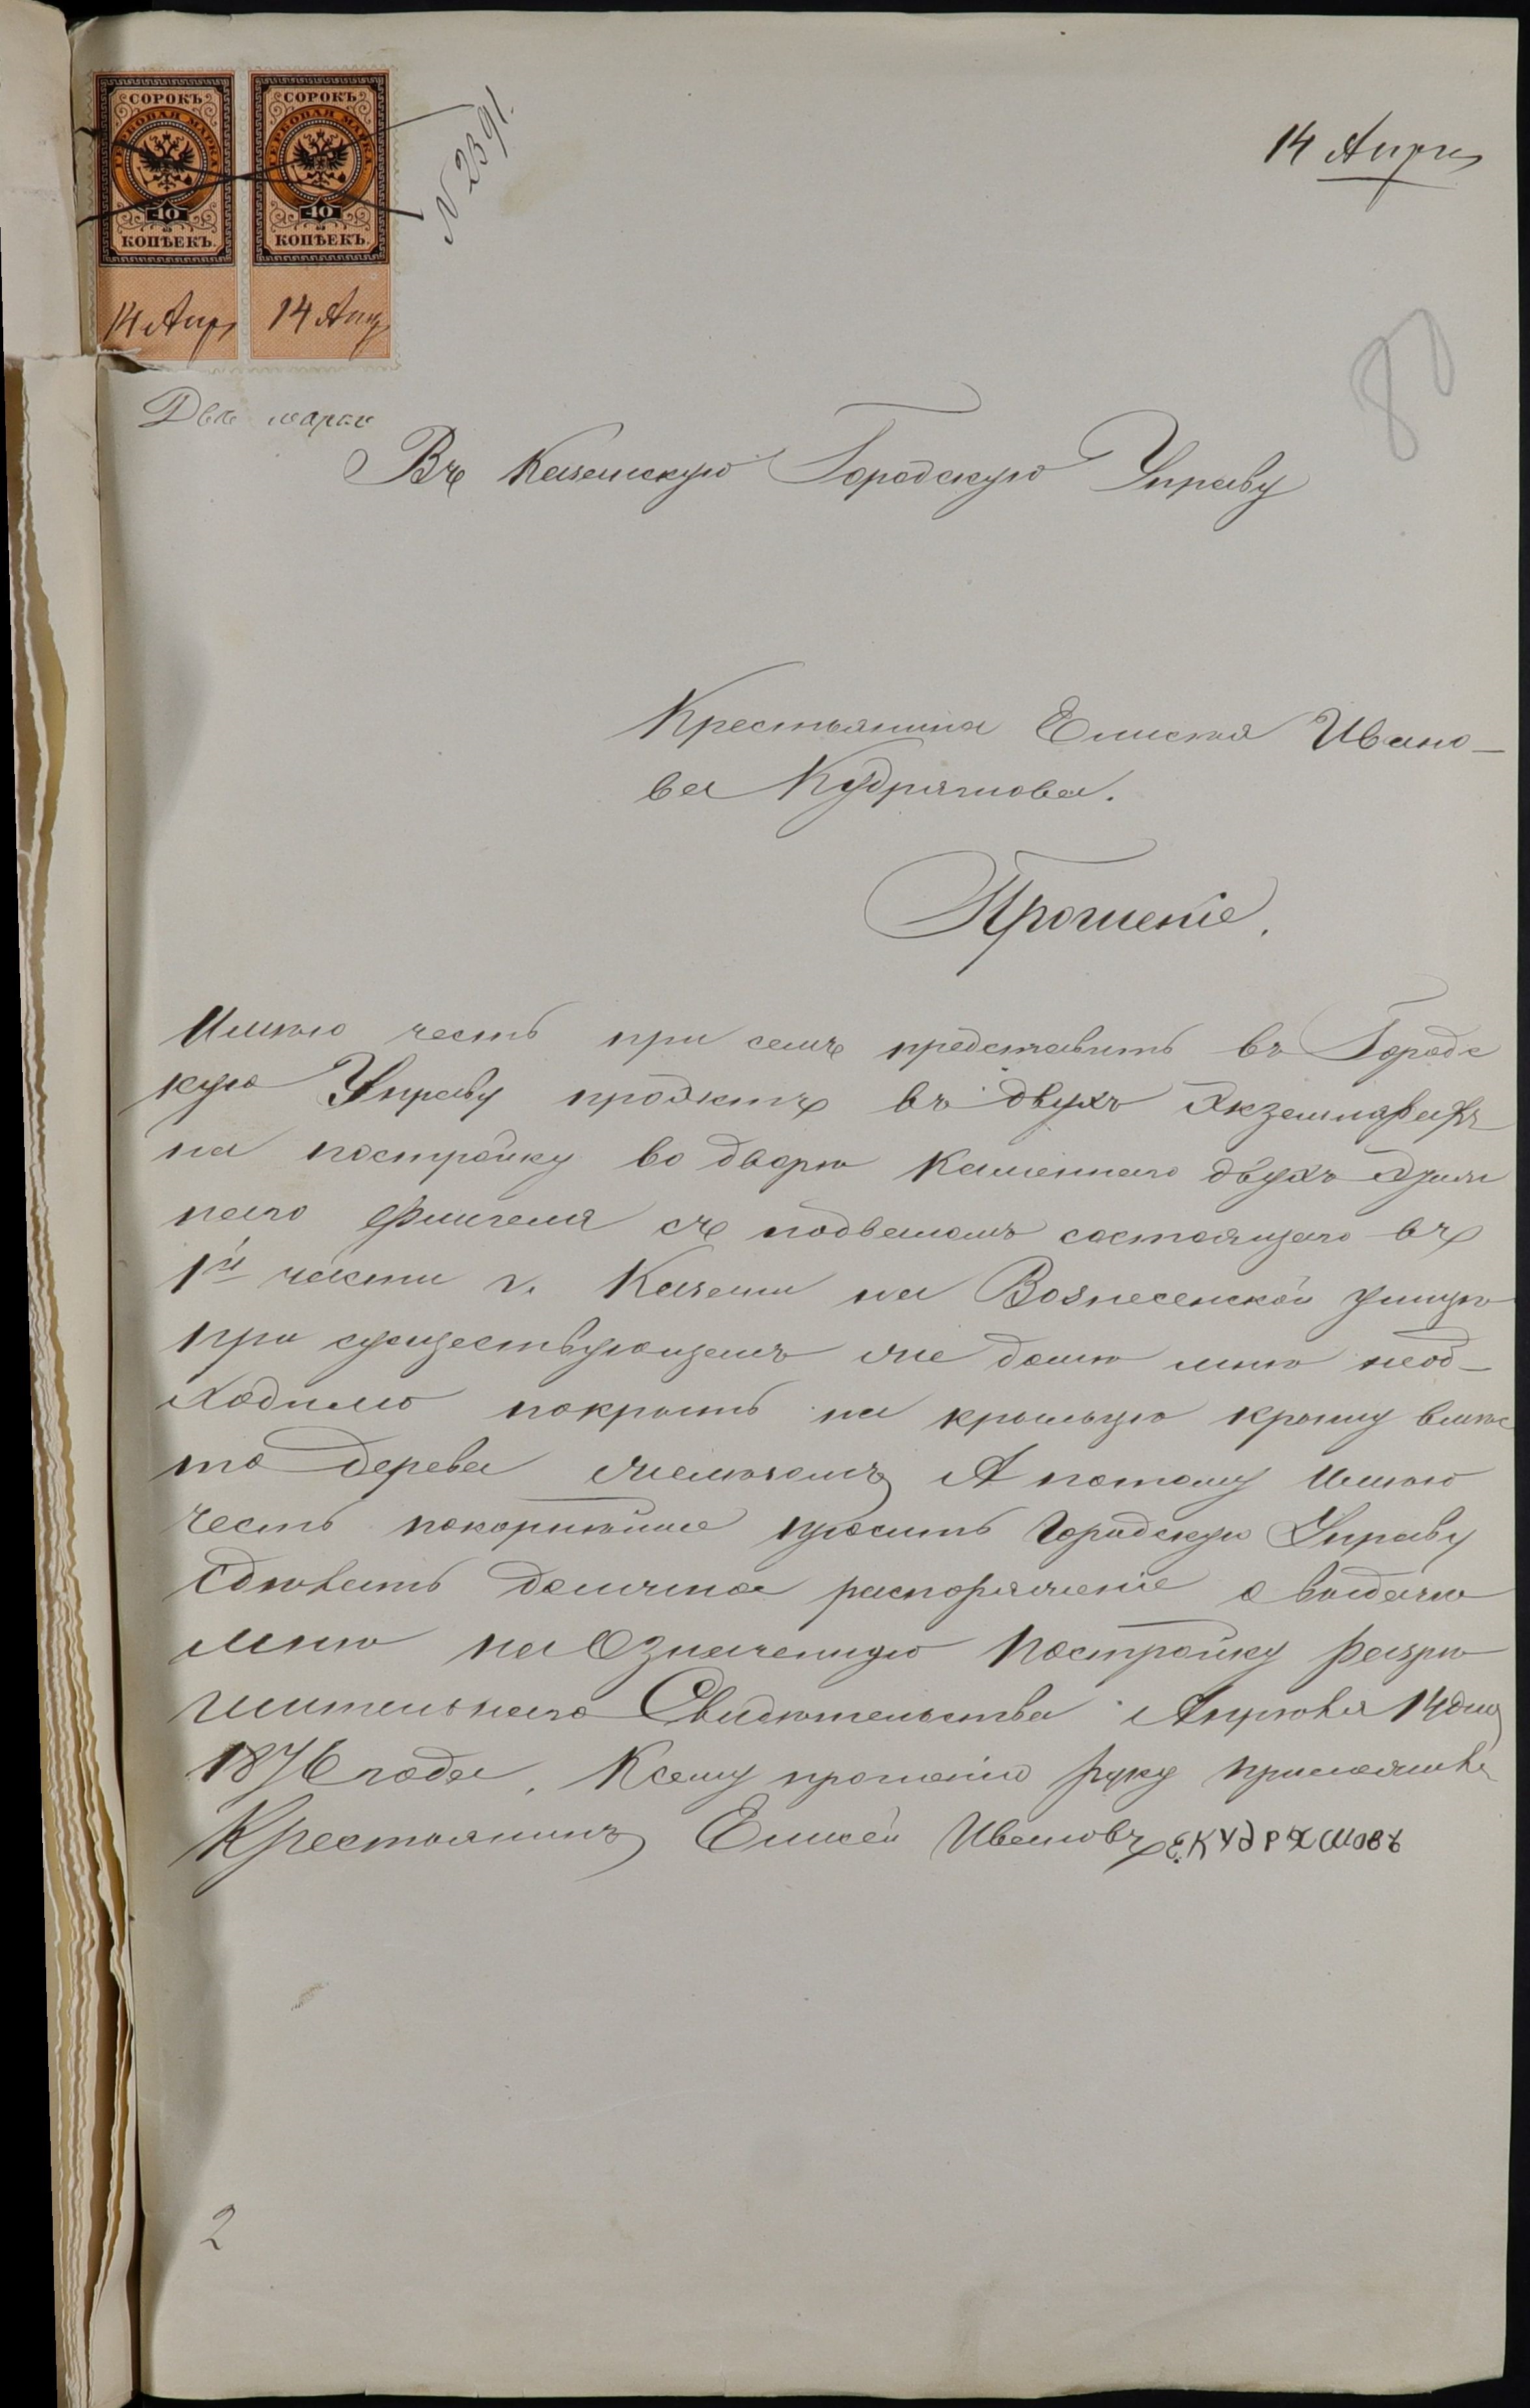 СОРОКЪ СОРОКЪ
ГЕРБОВАЯ МАРКА ГЕРБОВАЯ МАРКА
40 40
КОПѢЕКЪ. КОПѢЕКЪ.
14 Апр 14 Апр
N 2391.
14 Апрѣ
80
Двѣ марки
Въ Казанскую Городскую Управу
Крестьянина Елисея Ивано-
ва Кудряшова.
Прошеніе.
Имѣю честь при семъ представить въ Городс
кую Управу проэктъ въ двухъ Экземплярахъ
на постройку во дворѣ Каменнаго двухъ Этаж
наго флигеля съ подваломъ состоящаго въ
1й части г. Казани на Вознесенской улицѣ
при существующемъ же домѣ мнѣ необ-
ходимо покрыть на крыльцѣ крышу вмѣс
то дерева желѣзомъ А потому Имѣю
честь покорнѣйше просить Городскую Управу
сдѣлать должное распоряженіе о выдачѣ
мнѣ на Означенную Постройку разрѣ
шительнаго Свидѣтельства Апрѣля 14 дня
1876 года. К сему прошенію руку приложилъ
Крестьянинъ Елисей Ивановъ Е. КУДРЯШОВЪ
2